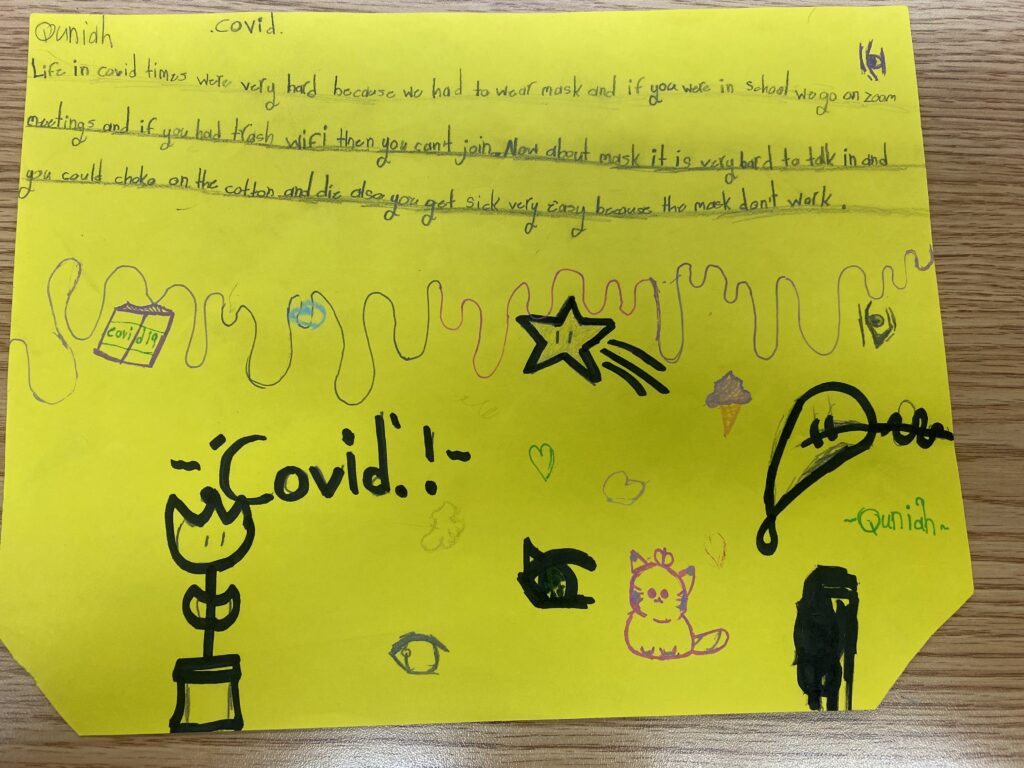 Quniah .covid.
Life in covid times were very hard because we had to wear mask and if you were in school we go on zoom
meetings and if you had trash wifi then you can't join. Now about mask it is very hard to talk in and
you could choke on the cotton and die also you get sick very easy because the mask don't work.
covid19
~Covid.!~
~Quniah~